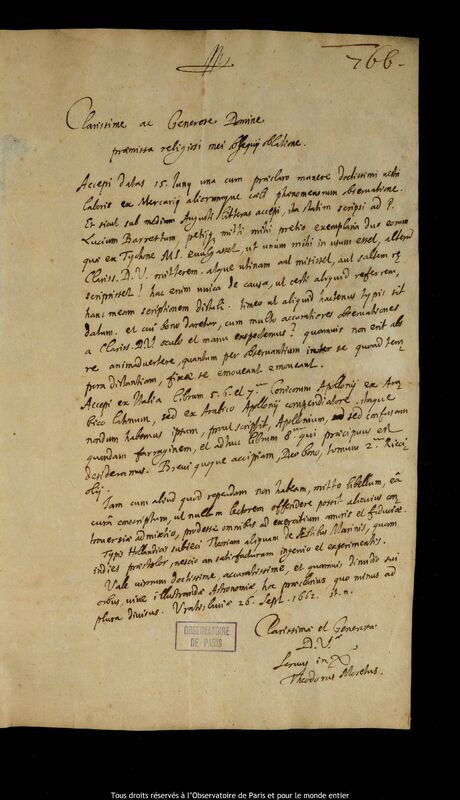 766.
Clarissime ac Generose Domine
præmissa religiosi mei obsequij oblatione.
Accepi datas 15. Iunij una cum præclaro munere doctissimi vestri
laboris ex Mercurij aliorumque cœli phænomenorum observatione.
Et sicut sub medium Augusti litteras accepi, ita statim scripsi ad P.
Lucium Barrettum, petijque mitti mihi pretio exemplaria duo eorum
quæ ex Tychone MS. evulgasset, ut unum mihi in usum esset, alterum
Clariss. D. V. mitterem. atque utinam aut misisset, aut saltem
scripsisset! hac enim unica de causa, ut certi aliquid referrem,
hanc meam scriptionem distuli. timeo ut aliquid hactenus typis sit
datum. et cui bono daretur, cum multo accuratiores observationes
a Clariss. D.V. oculo et manu expectemus? quamvis non erit abs
re animadvertere, quantum per observantium inter se quoad tem
pora distantiam, fixæ se emoveant emoveant.
Accepi ex Italia librum 5. 6. et 7. Conicorum Apollonij ex Ara
bico latinum, sed ex Arabico Apollonij compendiatore. itaque
nondum habemus ipsum, prout scripsit, Apollonium, sed confusam
quandam farraginem, et adhuc librum 8. qui præcipuus est
desideramus. Brevi quoque accipiam, Deo bono, tomum 2. Ricci
olij.
Iam cum aliud quod rependam non habeam, mitto libellum, eâ
curâ conscriptum, ut nullum lectorem offendere possit alicuius con
troversiæ admixtio, prodesse omnibus ad exercitium amoris et fiduciæ.
Typis Hollandicis subieci Theoriam aliquam de Æstibus Marinis, quam
indies præstolor, nescio an satisfacturam ingenio et experimentis.
Vale virorum doctissime, accuratissime, et quamvis dimidio sui
orbus, vive illustrandæ Astronomiæ, hac præclarius quo minus ad
plura divisus. Vratislaviæ 26. Sept. 1662. st. n.
Clarissimæ et Generosæ
D. V.
Servus in X
Theodorus Moretus.
OBSERVATOIRE
DE PARIS
Tous droits réservés à l'Observatoire de Paris et pour le monde entier